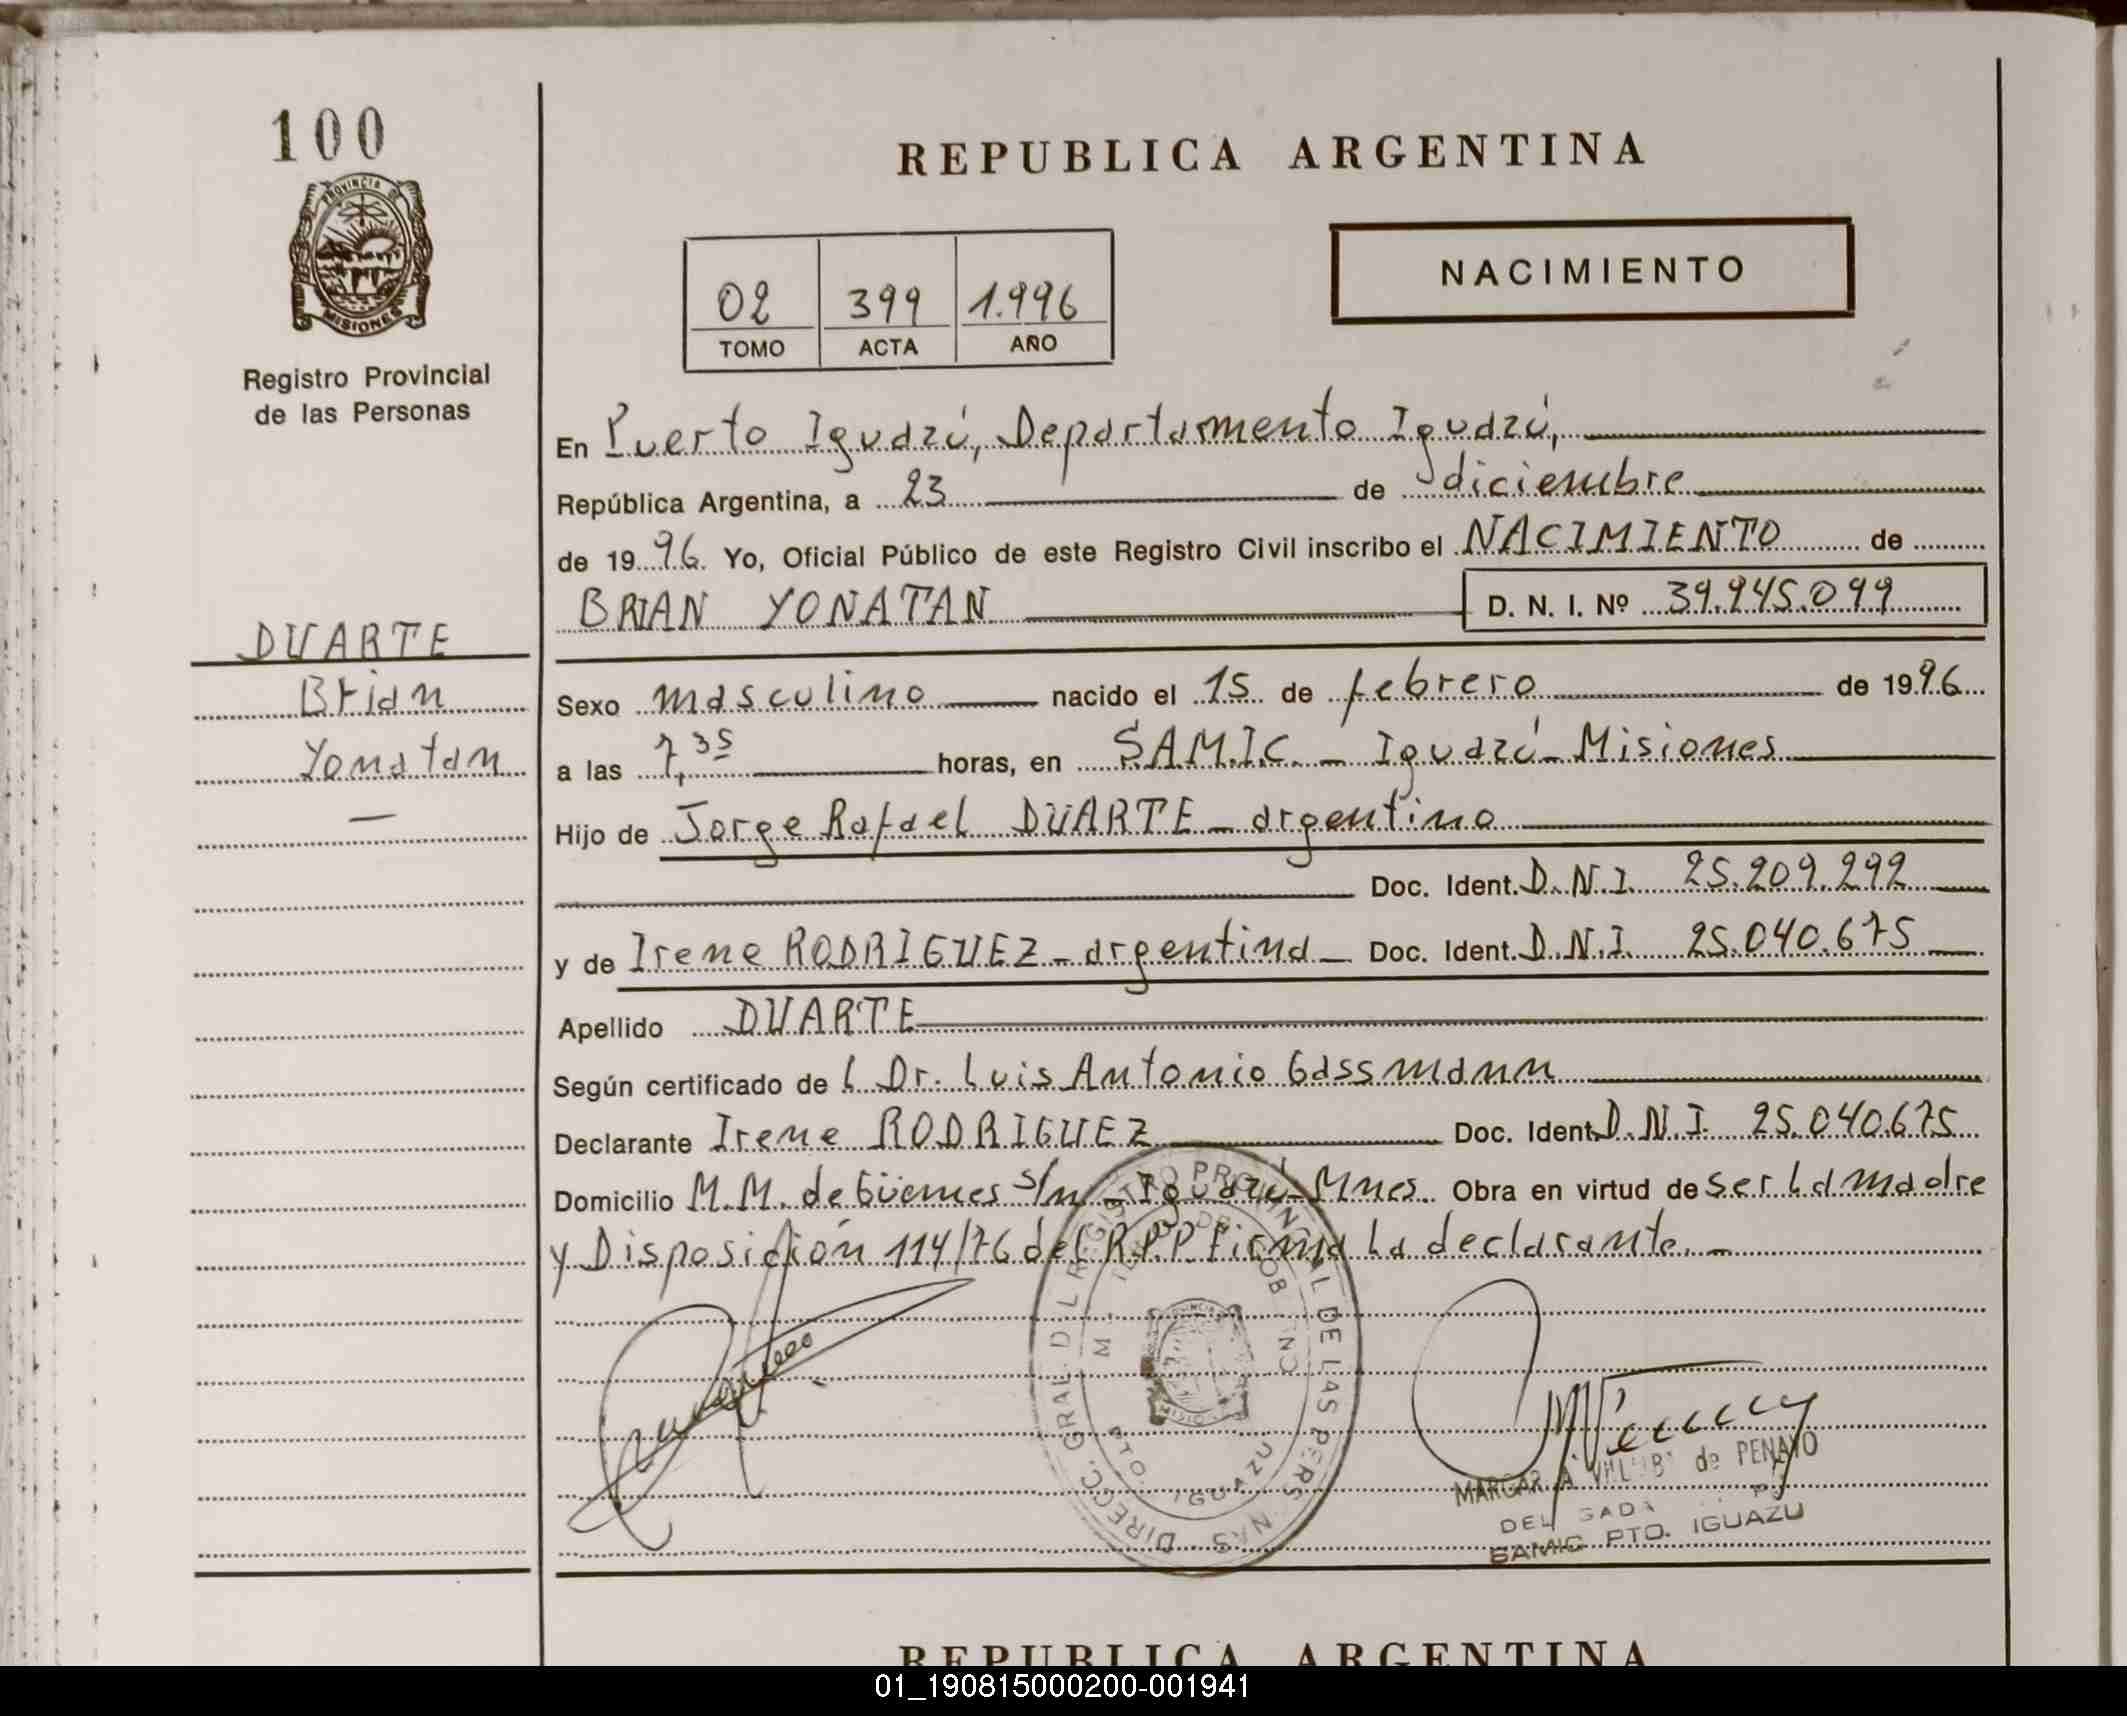 100
PROVINCIA DE
MISIONES
Registro Provincial
de las Personas
REPUBLICA ARGENTINA
NACIMIENTO
02 399 1.996
TOMO ACTA AÑO
En Puerto Iguazú, Departamento Iguazú,
República Argentina, a 23 de diciembre
de 1996. Yo, Oficial Público de este Registro Civil inscribo el NACIMIENTO de
BRIAN YONATAN D. N. I. Nº 39.945.099
DUARTE
Brian
Yonatan
—
Sexo masculino nacido el 15 de febrero de 1996
a las 7,35 horas, en SAM.I.C. - Iguazú - Misiones
Hijo de Jorge Rafael DUARTE - argentino
Doc. Ident. D.N.I. 25.209.292
y de Irene RODRIGUEZ - argentina - Doc. Ident. D.N.I. 25.040.675
Apellido DUARTE
Según certificado de l Dr. Luis Antonio Gassmann
Declarante Irene RODRIGUEZ Doc. Ident D.N.I. 25.040.675
Domicilio M.M. de Güemes s/n - Iguazú - Mnes. Obra en virtud de ser la madre
y Disposición 114/76 del R.P.P. Firma la declarante. -
DIRECC. GRAL. DEL REGISTRO PROVINCIAL DE LAS PERSONAS
PTO. IGUAZU
de PENAYO
SAMIC PTO. IGUAZU
REPUBLICA ARGENTINA
01_190815000200-001941